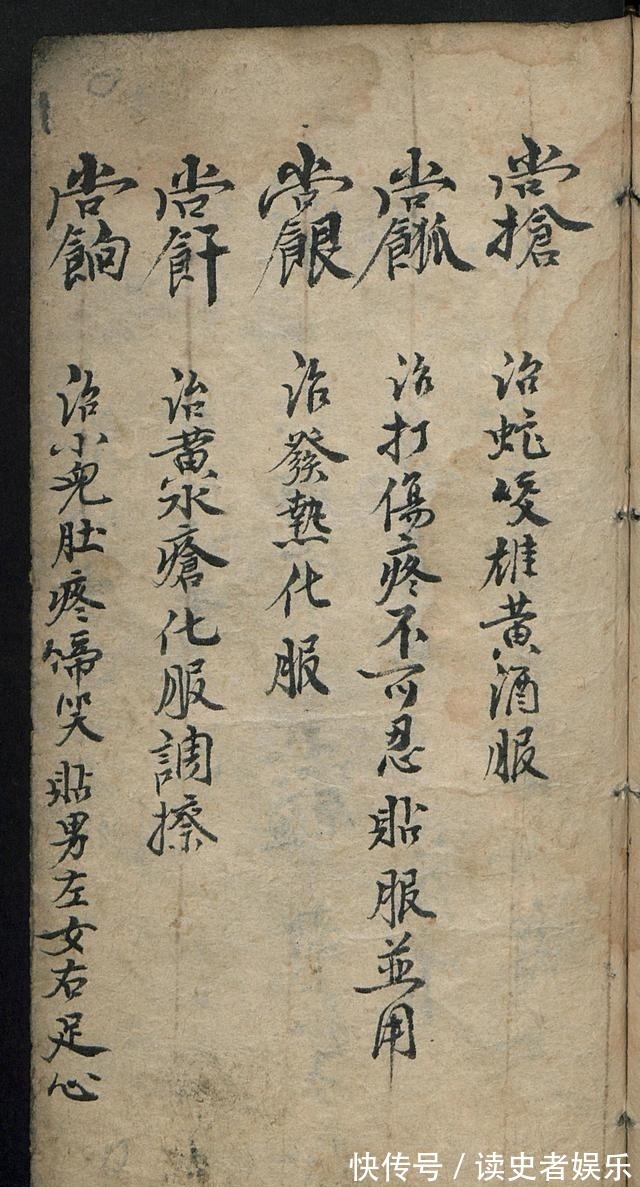 治蛇咬雄黄酒服
治打傷疼不可忍貼服並用
治發熱化服
治黄水瘡化服調擦
治小兒肚疼啼哭貼男左女右足心
快传号/读史者娱乐